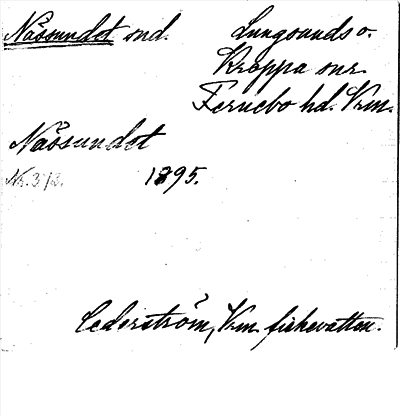 Nässundet snd. Lungsunds o.
Kroppa snr.
Fernebo hd. Vrm.
Nässundet
1895.
Cederström, Vrm. fiskevatten.